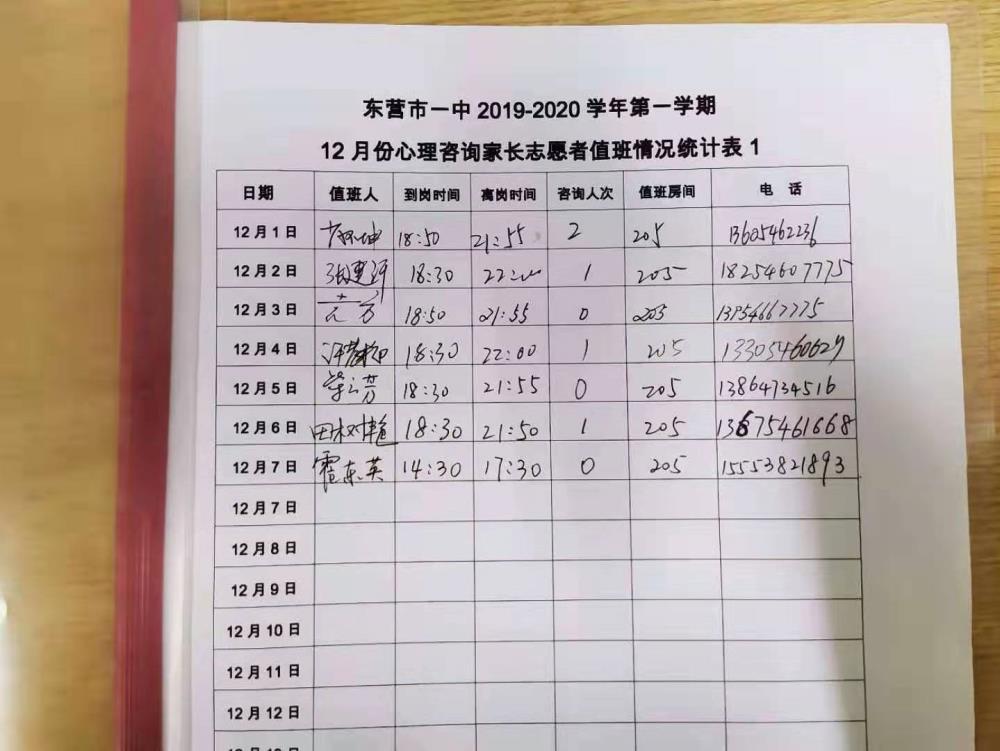 东营市一中 2019-2020 学年第一学期
12 月份心理咨询家长志愿者值班情况统计表 1
日期 值班人 到岗时间 离岗时间 咨询人次 值班房间 电 话
12 月 1 日 18:50 21:55 2 205 13605462236
12 月 2 日 18:30 1 205 18254607775
12 月 3 日 18:50 21:55 0 205
12 月 4 日 18:30 22:00 1 205 13305460629
12 月 5 日 18:30 21:55 0 205 13864734516
12 月 6 日 18:30 21:50 1 205 13675461668
12 月 7 日 霍东英 14:30 17:30 0 205 15553821893
12 月 7 日
12 月 8 日
12 月 9 日
12 月 10 日
12 月 11 日
12 月 12 日